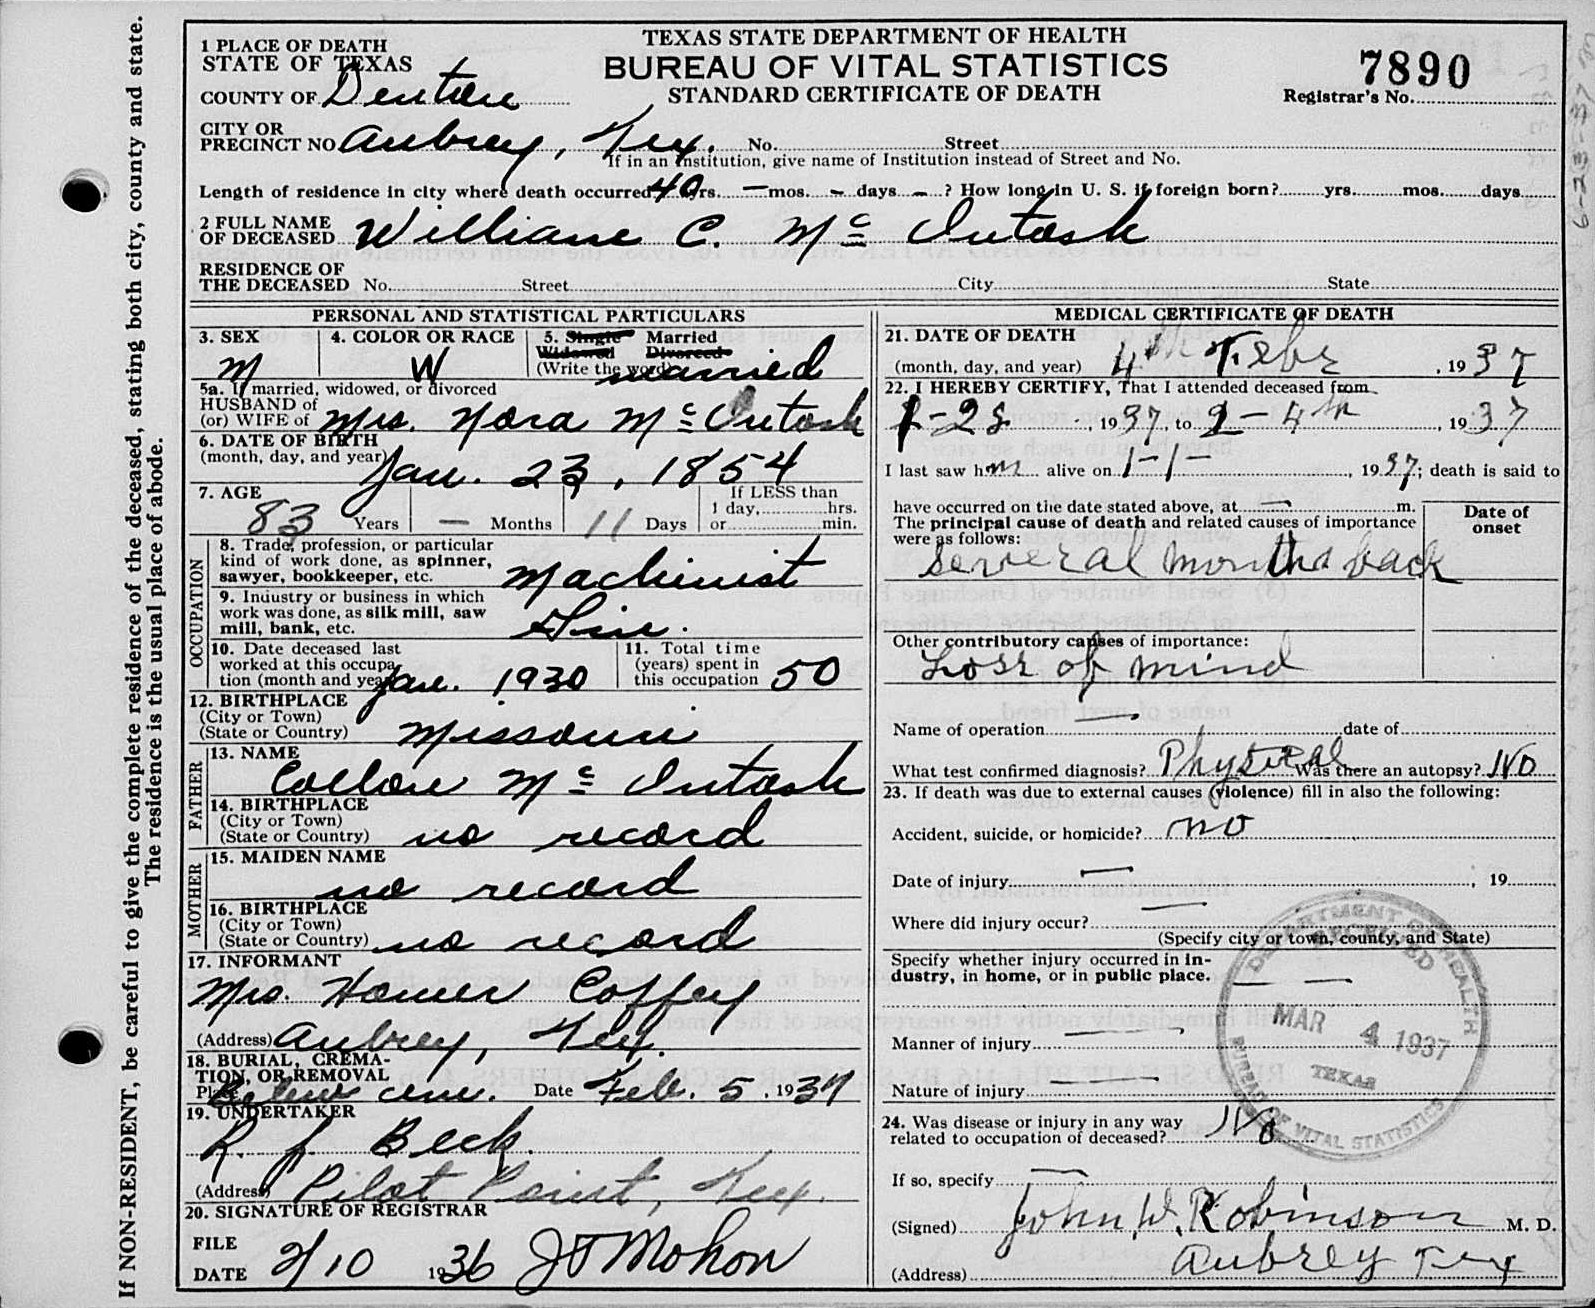 If NON-RESIDENT, be careful to give the complete residence of the deceased, stating both city, county and state.
The residence is the usual place of abode.
TEXAS STATE DEPARTMENT OF HEALTH
BUREAU OF VITAL STATISTICS
STANDARD CERTIFICATE OF DEATH
7890
Registrar's No.
1 PLACE OF DEATH
STATE OF TEXAS
COUNTY OF Denton
CITY OR
PRECINCT NO Aubrey, Tex. No. Street
If in an Institution, give name of Institution instead of Street and No.
Length of residence in city where death occurred 40 yrs. — mos. - days - ? How long in U. S. if foreign born? yrs. mos. days
2 FULL NAME
OF DECEASED William C. Mc Intosh
RESIDENCE OF
THE DECEASED No. Street City State
PERSONAL AND STATISTICAL PARTICULARS
3. SEX
M
4. COLOR OR RACE
W
5. Single Married
Widowed Divorced
(Write the word) married
5a. If married, widowed, or divorced
HUSBAND of
(or) WIFE of Mrs. Nora Mc Intosh
6. DATE OF BIRTH
(month, day, and year) Jan. 23, 1854
7. AGE
83 Years — Months 11 Days
If LESS than
1 day, hrs.
or min.
OCCUPATION
8. Trade, profession, or particular
kind of work done, as spinner,
sawyer, bookkeeper, etc. Machinist
9. Industry or business in which
work was done, as silk mill, saw
mill, bank, etc. Gin.
10. Date deceased last
worked at this occupa-
tion (month and year) Jan. 1930
11. Total time
(years) spent in
this occupation 50
12. BIRTHPLACE
(City or Town)
(State or Country) Missouri
FATHER
13. NAME
Mc Intosh
14. BIRTHPLACE
(City or Town)
(State or Country) no record
MOTHER
15. MAIDEN NAME
no record
16. BIRTHPLACE
(City or Town)
(State or Country) no record
17. INFORMANT
Mrs. Homer Coffey
(Address) Aubrey, Tex.
18. BURIAL, CREMA-
TION, OR REMOVAL
Place Belew cem. Date Feb. 5. 1937
19. UNDERTAKER
R. L. Beck.
(Address) Pilot Point, Tex.
20. SIGNATURE OF REGISTRAR
FILE
DATE 2/10 1936 Mohon
MEDICAL CERTIFICATE OF DEATH
21. DATE OF DEATH
(month, day, and year) 4th Febr, 1937
22. I HEREBY CERTIFY, That I attended deceased from
1-28, 1937, to 2-4th, 1937
I last saw him alive on 1-1-, 1937; death is said to
have occurred on the date stated above, at — m.
The principal cause of death and related causes of importance
were as follows:
Date of
onset
Several months back
Other contributory causes of importance:
Loss of mind
Name of operation — date of
What test confirmed diagnosis? Physical Was there an autopsy? No
23. If death was due to external causes (violence) fill in also the following:
Accident, suicide, or homicide? no
Date of injury —, 19
Where did injury occur? —
(Specify city or town, county, and State)
Specify whether injury occurred in in-
dustry, in home, or in public place. — —
Manner of injury — —
Nature of injury — —
24. Was disease or injury in any way
related to occupation of deceased? No
If so, specify —
(Signed) John W. Robinson M. D.
(Address) Aubrey Tex
DEPARTMENT OF HEALTH
RECEIVED
MAR 4 1937
TEXAS
BUREAU OF VITAL STATISTICS